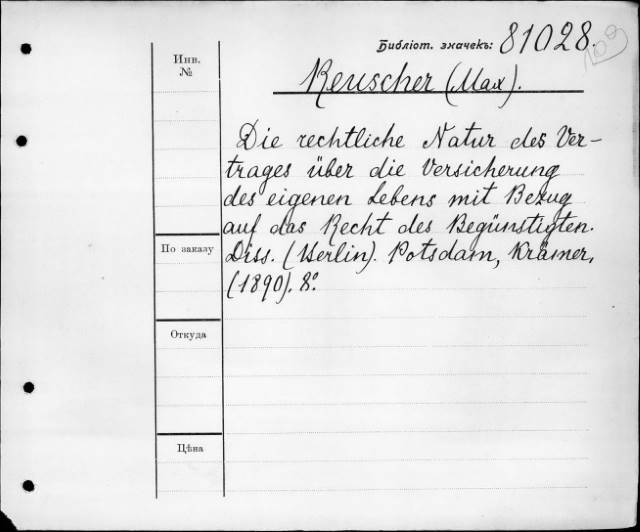 Библіот. значекъ: 81028.
109
Инв.
№
Reuscher (Max).
Die rechtliche Natur des Ver-
trages über die Versicherung
des eigenen Lebens mit Bezug
auf das Recht des Begünstigten.
По заказу
Diss. (Berlin). Potsdam, Krämer,
(1890). 8°.
Откуда
Цѣна